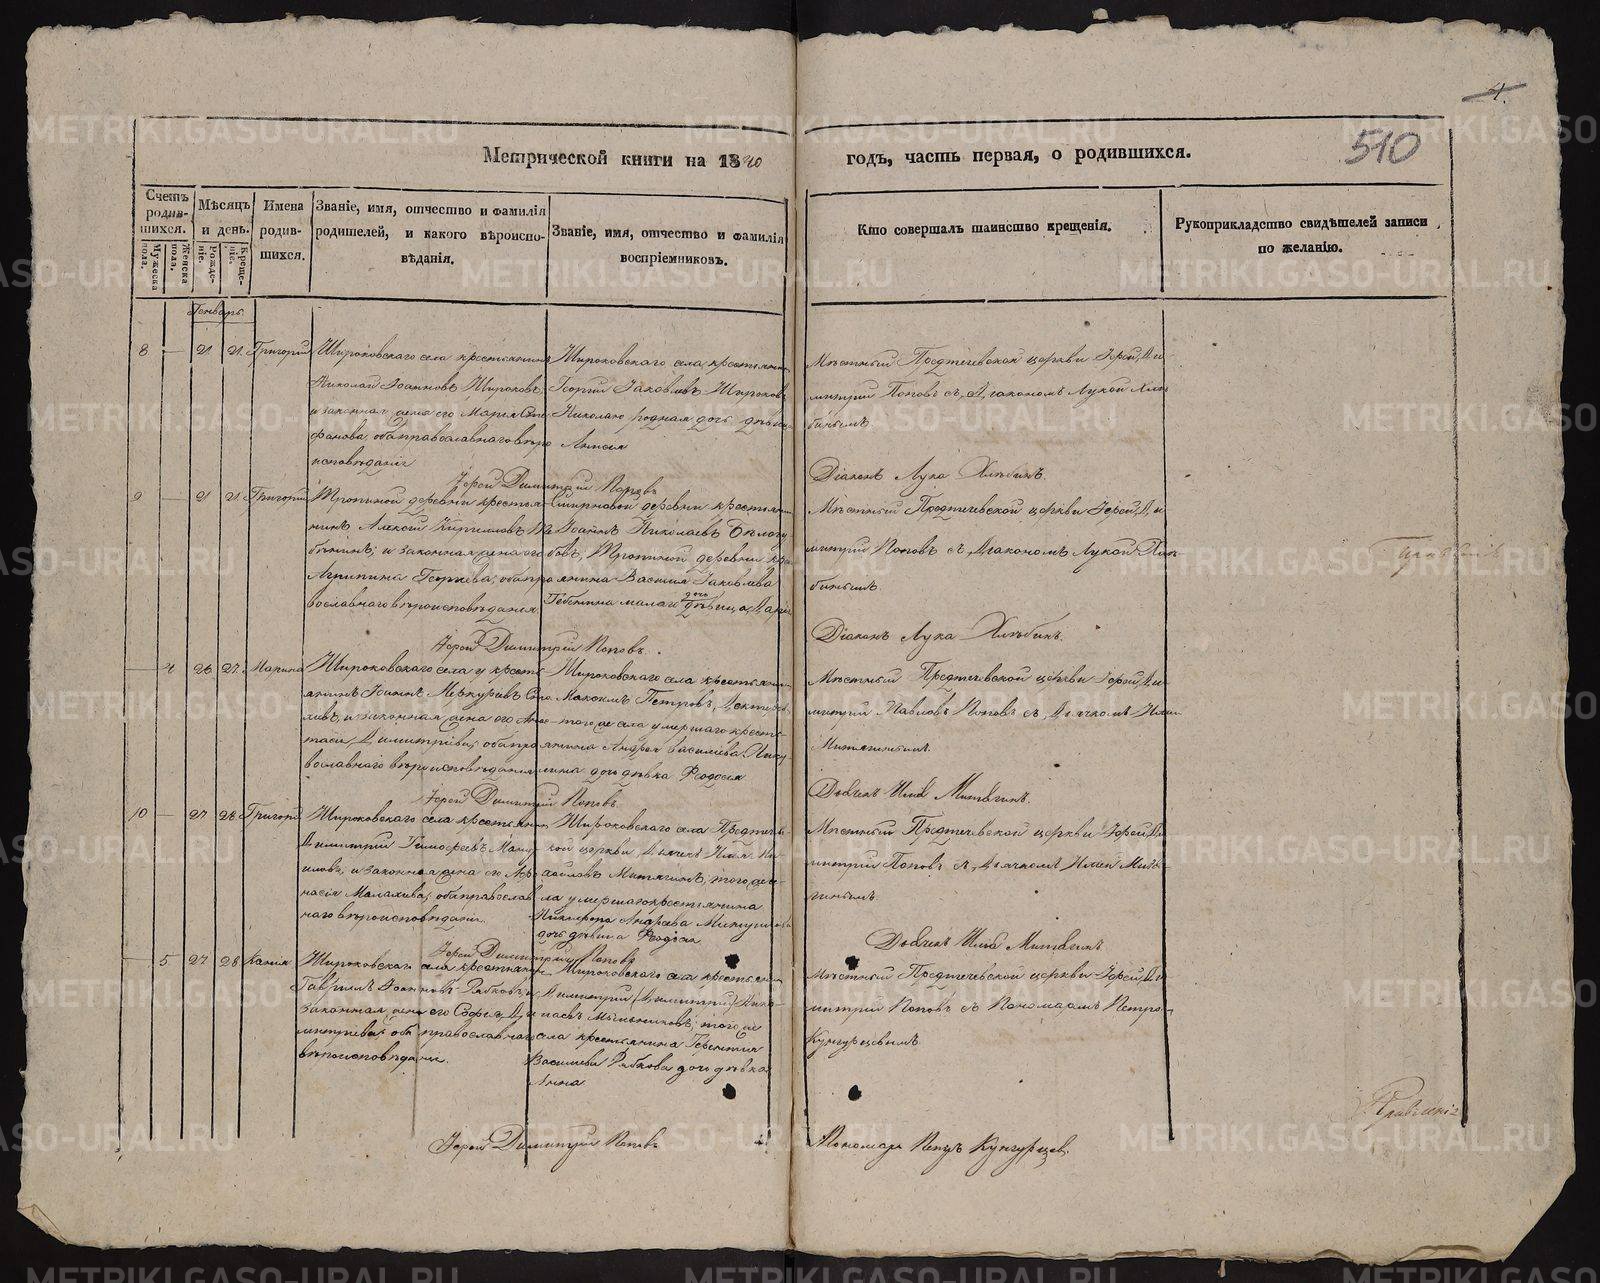 4.
510
Метрической книги на 1840
годъ, часть первая, о родившихся.
Счетъ родив- шихся.
Мужеска пола.
Женска пола.
Мѣсяцъ и день.
Рожде- ніе.
Креще- ніе.
Имена родив- шихся.
Званіе, имя, отчество и фамилія родителей, и какого вѣроиспо- вѣданія.
Званіе, имя, отчество и фамилія воспріемниковъ.
Кто совершалъ таинство крещенія.
Рукоприкладство свидѣтелей записи по желанію.
Генварь
8 — 21 21 Григорій
Широковскаго села крестьянинъ
Николай Іоанновъ Широковъ,
и законная жена его Марія Сте-
фанова, оба православнаго вѣро
исповѣданія
Широковскаго села, крестьянинъ
Георгій Іаковлевъ Широковъ
Николаю родная дочь дѣвица
Анисія
Мѣстный Предтечевской церкви Іерей Ди
митрій Поповъ съ Діакономъ Лукой Хлѣ
бинымъ.
Іерей Димитрій Поповъ
Діаконъ Лука Хлѣбинъ.
9 — 21 21 Григорій
Тропиной деревни крестья-
нинъ Алексій Кирилловъ
и законная жена его
Агрипина Георгіева, оба пра
вославнаго вѣроисповѣданія
Смирновой деревни крестьянинъ
Іоаннъ Николаевъ Бѣлогу
бовъ, Тропиной деревни кре
янина Василія Іаковлева
дочь
дѣвица Дарія
Мѣстный Предтечевской церкви Іерей Ди
митрій Поповъ съ Діакономъ Лукой Хлѣ
бинымъ.
Іерей Димитрій Поповъ.
Діаконъ Лука Хлѣбинъ.
— 4 26 27 Марина
Широковскаго села у кресть
янинъ Іоаннъ Меркурьевъ
и законная жена его Анас-
тасія Димитріева, оба пра
вославнаго вѣроисповѣданія
Широковскаго села крестьянинъ
Максимъ Петровъ
тогоже села умершаго кресть-
янина Андрея Василіева
дочь дѣвка Ѳеодосія
Мѣстный Предтечевской церкви Іерей Ди
митрій Павловъ Поповъ съ Дьячкомъ Ильей
Митягинымъ.
Іерей Димитрій Поповъ.
Дьячекъ Илья Митягинъ.
10 — 27 28 Григорій
Широковскаго села крестьянинъ
Димитрій Тимофеевъ
и законная жена его
оба православ
наго вѣроисповѣданія.
Широковскаго села Предтечев-
кой церкви, Дьячекъ Илья Ми-
хайловъ Митягинъ, тогоже се-
ла умершаго крестьянина
Никифора Андреева
дочь дѣвица Ѳеодосія
Мѣстный Предтечевской церкви Іерей Ди
митрій Поповъ съ Дьячкомъ Ильей Митя
гинымъ.
Іерей Димитрій Поповъ
Дьячекъ Илья Митягинъ
— 5 27 28 Ксенія
Широковскаго села крестьянинъ
Гавріилъ Іоанновъ Рябковъ, и
законная жена его Софія Ди
митріева, оба православнаго
вѣроисповѣданія.
Широковскаго села крестьянинъ
Димитрій
Мыльниковъ, тогоже
села крестьянина Терентія
Василіева Рябкова дочь дѣвка
Анна
Мѣстный Предтечевской церкви Іерей Ди
митрій Поповъ съ Пономаремъ Петромъ
Кунгурцевымъ.
Іерей Димитрій Поповъ
Пономарь Петръ Кунгурцевъ.
METRIKI.GASO-URAL.RU